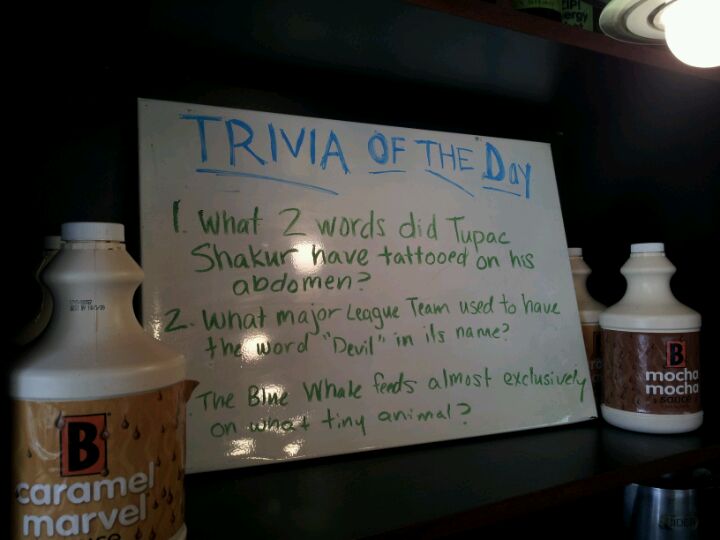 TRIVIA OF THE Day
1. What 2 words did Tupac
Shakur have tattooed on his
abdomen?
2. What major League Team used to have
the word "Devil" in its name?
The Blue Whale feeds almost exclusively
on what tiny animal?
B
caramel
marvel
B
mocha
mocha
sauce